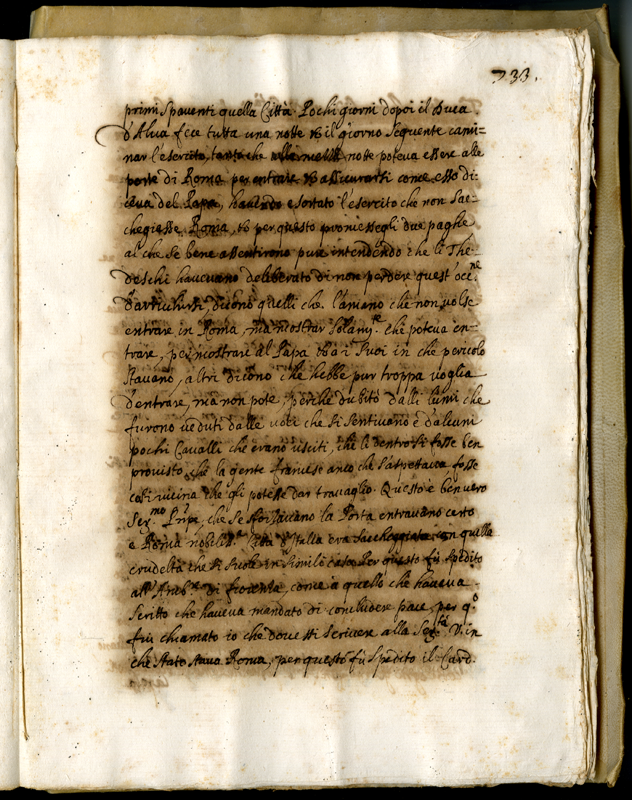 733.
primi spaventi quella Città. Pochi giorni dopoi il Duca
d'Alva fece tutta una notte et il giorno seguente cami=
nar l'esercito, tanto che alla notte poteva essere alle
porte di Roma per entrare et assicurarsi come esso di=
ceva del Papa, havendo esortato l'esercito che non sac=
chegiasse Roma, et per questo promessegli due paghe
al che se bene assentirono pure intendendo che li The=
deschi havevano deliberato di non perdere quest'occ.ne
d'arrichirsi, dicono quelli che l'amano che non volse
entrare in Roma, ma mostrar solam.te che poteva en=
trare, per mostrare al Papa et a i suoi in che pericolo
stavano, altri dicono che hebbe pur troppa voglia
d'entrare, ma non pote, perche dubitò dalli lumi che
furono veduti dalle voci che si sentivano e d'alcuni
pochi Cavalli che erano usciti, che li dentro si fosse ben
provisto, che la gente franzese anco che s'aspettava, fosse
cosi vicina che gli potesse dar travaglio. Questo è ben vero
Ser.mo Pnpe, che se sforzavano la Porta entravano certo
e Roma nobiliss.a Città d'Italia era saccheggiata con quella
crudeltà che si suole in simili casi. Per questo fù spedito
all'Amb.r di fiorenza, come a quello che haveva
scritto che haveva mandato di concludere pace, per q.o
fui chiamato io che dovessi scrivere alla Ser.tà V. in
che stato stava Roma, per questo fù spedito il Card.